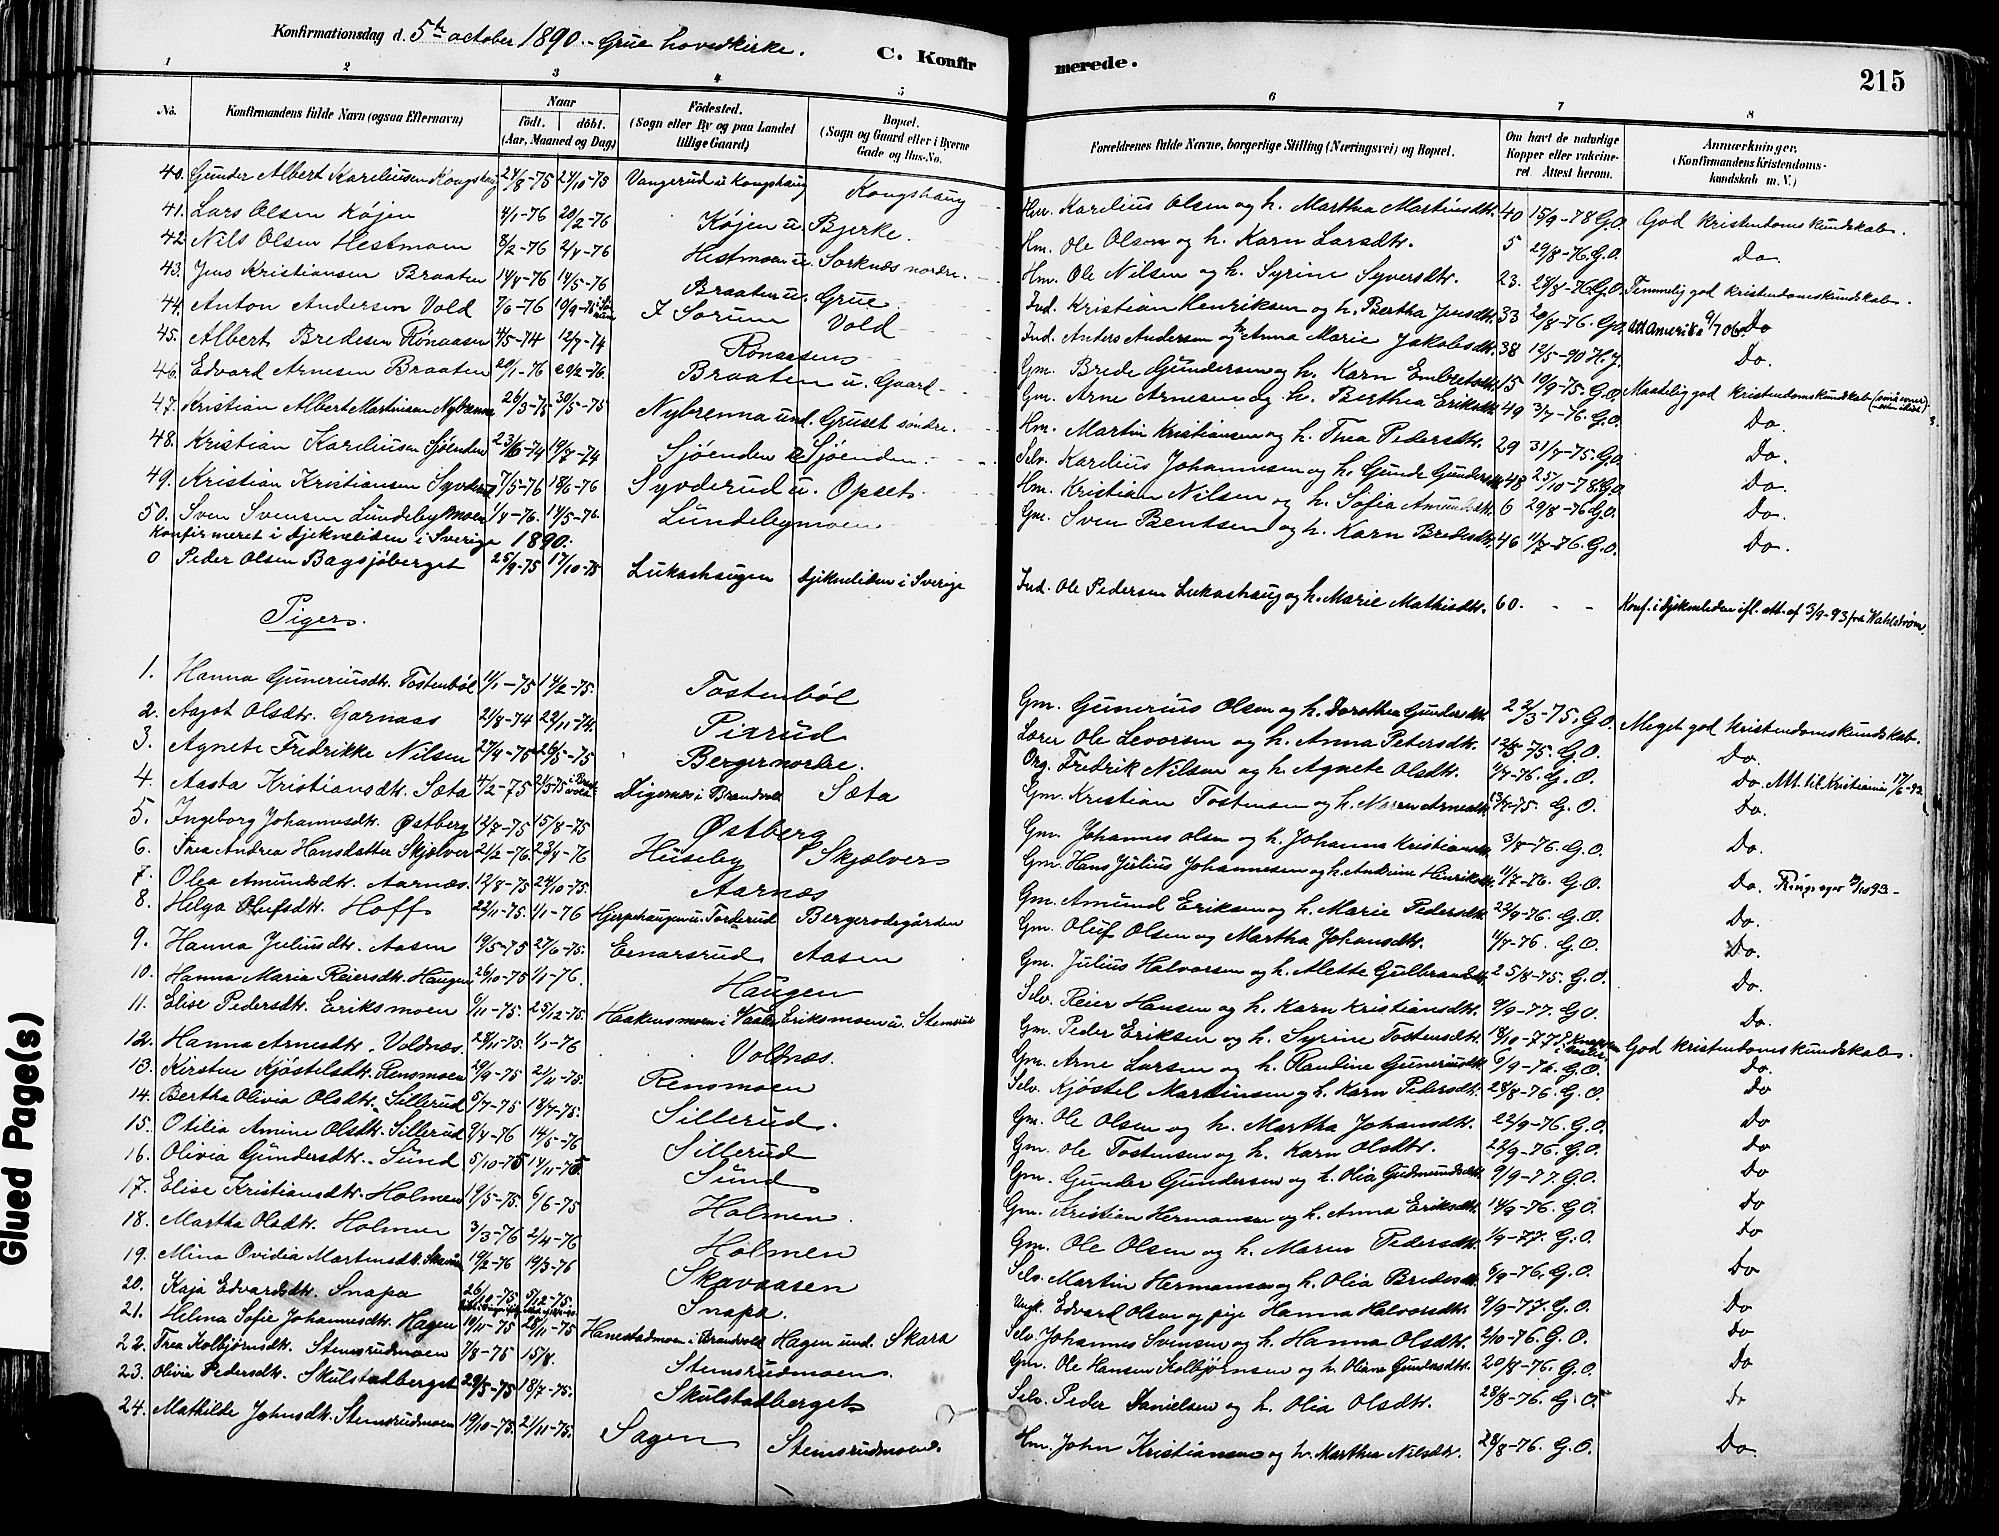 Konfirmationsdag d. 5te october 1890.- Grue hovedkirke.
C. Konfirmerede.
215
1 2 3 4 5 6 7 8
No. Konfirmandens fulde Navn (ogsaa Efternavn) Naar födt. döbt. (Aar, Maaned og Dag) Födested. (Sogn eller By og paa Landet tillige Gaard) Bopæl. (Sogn og Gaard eller i Byerne Gade og Hus-No. Forældrenes fulde Navne, borgerlige Stilling (Næringsvei) og Bopæl. Om havt de naturlige Kopper eller vakcineret Attest herom. Anmærkninger. (Konfirmandens Kristendomskundskab m. V.)
40. Gunder Albert Kareliusen Kongshaug 24/8-75 24/10-75 Vangerud u Kongshaug Kongshaug Karelius Olsen og h. Martha Martinsdtr. 40 15/9-78 G.O. God kristendomskundskab.
41. Lars Olsen Köjen 4/1-76 20/2-76 Köjen u. Bjerke. Hm. Ole Olsen og h. Karn Larsdtr. 5 29/8-76 G.O. Do.
42 Nils Olsen Hestmoen 8/2-76 2/4-76 Hestmoen u. Sorknæs nordre. Hm. Ole Nilsen og h. Syrine Syversdtr. 23. 28/8-76 G.O. Temmelig god kristendomskundskab.
43. Jens Kristiansen Braaten 14/4-76 14/5-76 Braaten u. Grue Ind. Kristian Henriksen og h. Bertha Jensdtr. 33 20/8-76. G.O. Do
44. Anton Andersen Vold 7/6-76 I Sorum Vold Ind. Anders Andersen og Anna Marie Jakobsdtr. 38 12/5-90 H.J. ad Amerika Do.
45. Albert Bredesen Rönaasen 4/5-74 12/7-74 Rönaasen Gm. Brede Gundersen og h. Karn Embretsdtr. 15 10/9-75. G.O. Maadelig god kristendomskundskab
46. Edvard Arnesen Braaten 20/1-76 29/2-76. Braaten u. Gaard Gm. Arne Arnesen og h. Berthea Eriksdtr. 49 3/7-76. G.O. Do.
47. Kristian Albert Martinsen Nybrenna 26/3-75 30/5-75 Nybrenna und. Gruset söndre. Hm. Martin Kristiansen og h. Thea Pedersdtr. 29 31/7-75. G.O. Do.
48. Kristian Kareliusen Sjöenden 23/6-74 19/7-74 Sjöenden Sjöenden. Selv. Karelius Johannesen og h. Gunde Gundersdtr. 48 25/10-78. G.O. Do.
49. Kristian Kristiansen Syverud 7/5-76 18/6-76 Syvderud u. Opset. Hm. Kristian Nilsen og h. Sofia Amundsdtr. 6 29/8-76 G.O. Do.
50. Sven Svensen Lundebymoen 1/4-76. 14/5-76. Lundebymoen Gm. Sven Bentsen og h. Karn Bredesdtr. 46 11/7-76. G.O. Do.
Konfirmeret i Djekneliden i Sverige 1890.
0 Peder Olsen Bagsjöberget 25/9-75 17/10-75 Lukashaugen Djekneliden i Sverige Ind. Ole Pedersen Lukashaug og h. Marie Mathisdtr. 60. - - Konf. i Djekneliden ifl. att. af 3/9-93 fra Wahlström.
Piger.
1. Hanna Guneriusdtr. Tostenböl 11/1-75 14/2-75. Tostenböl Gm. Gunerius Olsen og h. Dorothea Gundersdtr. 22/3-75. G.O. Meget god kristendomskundskab.
2. Aagot Olsdtr. Garnaas 21/8-74 29/11-74. Pirrud Lærer Ole Levorsen og h. Anna Petersdtr. 12/5-75. G.O. Do.
3. Agnete Fredrikke Nilsen 27/4-75 26/5-75 Berger nordre. Org. Fredrik Nilsen og h. Agnete Olsdtr. 1/7-76. G.O. Do. Att. til Kristiania 17/6-92.
4. Aasta Kristiansdtr. Sæta 4/2-75 Digernæs i Brandvold Sæta Gm. Kristian Tostensen og h. Maren Arnesdtr. G.O. Do.
5. Ingeborg Johannesdtr. Østberg 12/7-75 15/8-75 Østberg Gm. Johannes Olsen og h. Johanna Kristiansdtr. 3/8-76. G.O. Do.
6. Trea Andrea Hansdatter Skjælver 2/2-76. 23/4-76 Huseby Skjælver Gm. Hans Julius Johannesen og h. Andrine Henriksdtr. 11/7-76. G.O. Do.
7. Olea Amundsdtr. Aarnæs. 12/8-75 24/10-75. Aarnæs Gm. Amund Eriksen og h. Marie Pedersdtr. 22/9-76. G.O. Do.
8. Helga Olufsdtr. Hoff 22/11-75. 1/1-76 Hjerpehaugen u. Torderud Bergerodegården Gm. Oluf Olsen og Martha Johansdtr. 11/7-76. G.O. Do.
9. Hanna Juliusdtr. Aasen 19/5-75 27/6-75. Eenarsrud Aasen Gm. Julius Halvorsen og h. Alette Gulbrandsdtr. 25/8-75. G.O. Do.
10. Hanna Maria Reiersdtr. Haugen 26/10-75 1/1-76. Haugen Selv. Reier Hansen og h. Karn Kristiansdtr. 9/9-77. G.O. Do.
11. Elise Pedersdtr. Eriksmoen 6/11-75. 25/12-75. Haakensmoen i Vaaler Eriksmoen u. Stemsrud Gm. Peder Eriksen og h. Syrine Tostensdtr. 18/10-77 God kristendomskundskab.
12. Hanna Arnesdtr. Voldnæs. 28/11-75. 1/1-76 Voldnæs. Gm. Arne Larsen og h. Randine Guneriusdtr. 6/9-76. G.O. Do.
13. Kirsten Kjöstelsdtr. Rensmoen 29/9-75 21/11-75. Rensmoen Selv. Kjöstel Martinsen og h. Karn Pedersdtr. 28/8-76. G.O. Do
14. Bertha Olivia Olsdtr. Sillerud 5/7-75 18/7-75. Sillerud. Gm. Ole Olsen og h. Martha Johansdtr. 22/9-76. G.O. Do
15. Otilia Amine Olsdtr. Sillerud 9/4-76 14/5-76 Sillerud Gm. Ole Tostensen og h. Karn Olsdtr. 22/9-76. G.O. Do
16. Olivia Gundersdtr. Sund 5/10-75 14/11-75 Sund Gm. Gunder Gundersen og h. Olia Gudmundsdtr. 9/9-77. G.O. Do
17. Elise Kristiansdtr. Holmen 19/5-75. 6/6-75 Holmen. Gm. Kristian Hermansen og h. Anna Eriksdtr. 14/9-76. G.O. Do
18. Martha Olsdtr. Holmen 3/3-76 2/4-76 Holmen Gm. Ole Olsen og h. Maren Pedersdtr. 1/9-77. G.O. Do
19. Mina Ovidia Martinsdtr. 10/2-76 19/3-76 Skavaasen Selv. Martin Hermansen og h. Olia Bredesdtr. 6/9-76. G.O. Do
20. Kaja Edvardsdtr. Snapa 26/10-75 5/12-75. Snapa. Ungk. Edvard Olsen og pige Hanna Halvorsdtr. 9/9-77. G.O. Do
21. Helma Sofie Johannesdtr. Hagen 10/11-75 28/11-75 Hanestadmoen i Brandvold Hagen und. Skara Selv. Johannes Svensen og h. Hanna Olsdtr. 2/10-76. G.O. Do
22. Trea Kolbjörnsdtr. Stemsrudmoen 7/8-75 15/8. Stemsrudmoen. Gm. Ole Hansen Kolbjörnsen og h. Oliane Gundersdtr. 20/8-76. G.O. Do
23. Olivia Pedersdtr. Skulstadberget 29/5-75 18/7-75. Skulstadberget Selv. Peder Danielsen og h. Olia Olsdtr. 28/8-76. G.O. Do
24. Mathilde Johnsdtr. Stemsrudmoen 19/10-75. 21/11-75. Sagen Stemsrudmoen. Hm. John Kristiansen og h. Marthea Nilsdtr. 28/8-76. G.O. Do.
Glued Page(s)